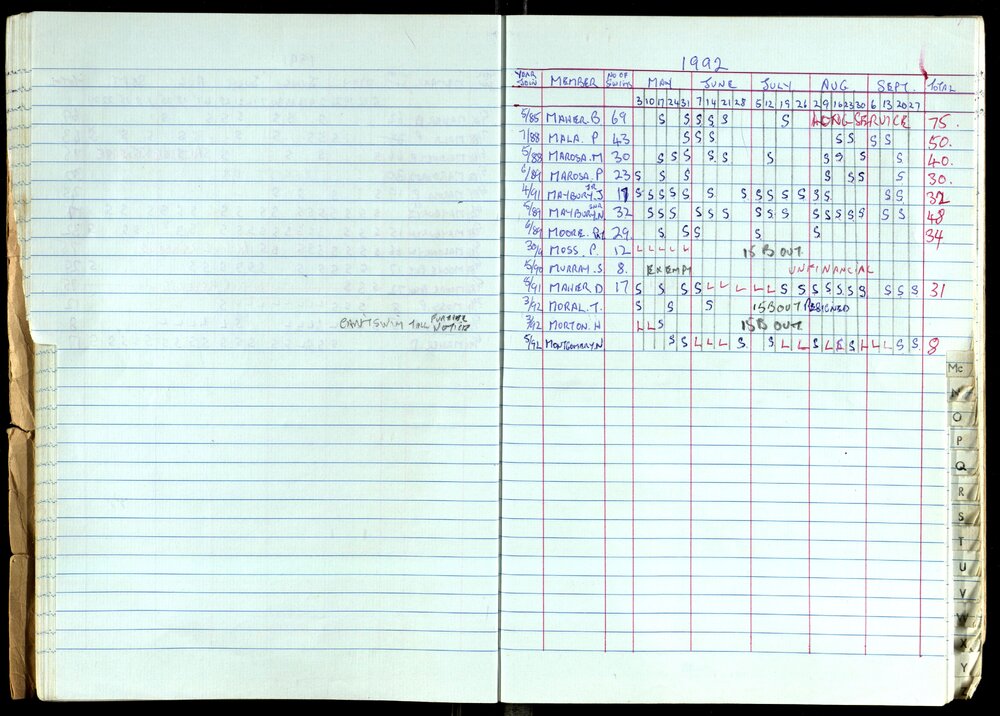 1992
YEAR JOIN MEMBER NO OF SWIMS MAY JUNE JULY AUG. SEPT. TOTAL
3 10 17 24 31 7 14 21 28 5 12 19 26 2 9 16 23 30 6 13 20 27
5/85 MAHER B 69 S S S S S S LONG SERVICE 75.
7/88 MALA. P 43 S S S S S S S 50.
5/88 MAROSA. M 30 S S S S S S S S S S 40.
6/89 MAROSA. P 23 S S S S S S S 30.
4/91 MAYBURY. J JR 11 S S S S S S S S S S S S S S S 32
5/89 MAYBURY. N SNR 32 S S S S S S S S S S S S S S S S 48
6/89 MOORE. 29 S S S S S 34
MOSS. P. 12 L L L L L 15 B OUT
5/90 MURRAY. S 8. EXEMPT UNFINANCIAL
8/91 MAHER D 17 S S S S L L L L L S S S S S S S S S S 31
3/92 MORAL. T. S S S 15 B OUT RESIGNED
CANT SWIM TILL FURTHER NOTICE 3/92 MORTON. H L L S 15 B OUT
5/92 MONTGOMERY. N S S L L L S S L L S L S S L L L S S 8
Mc
N
O
P
Q
R
S
T
U
V
W
X
Y